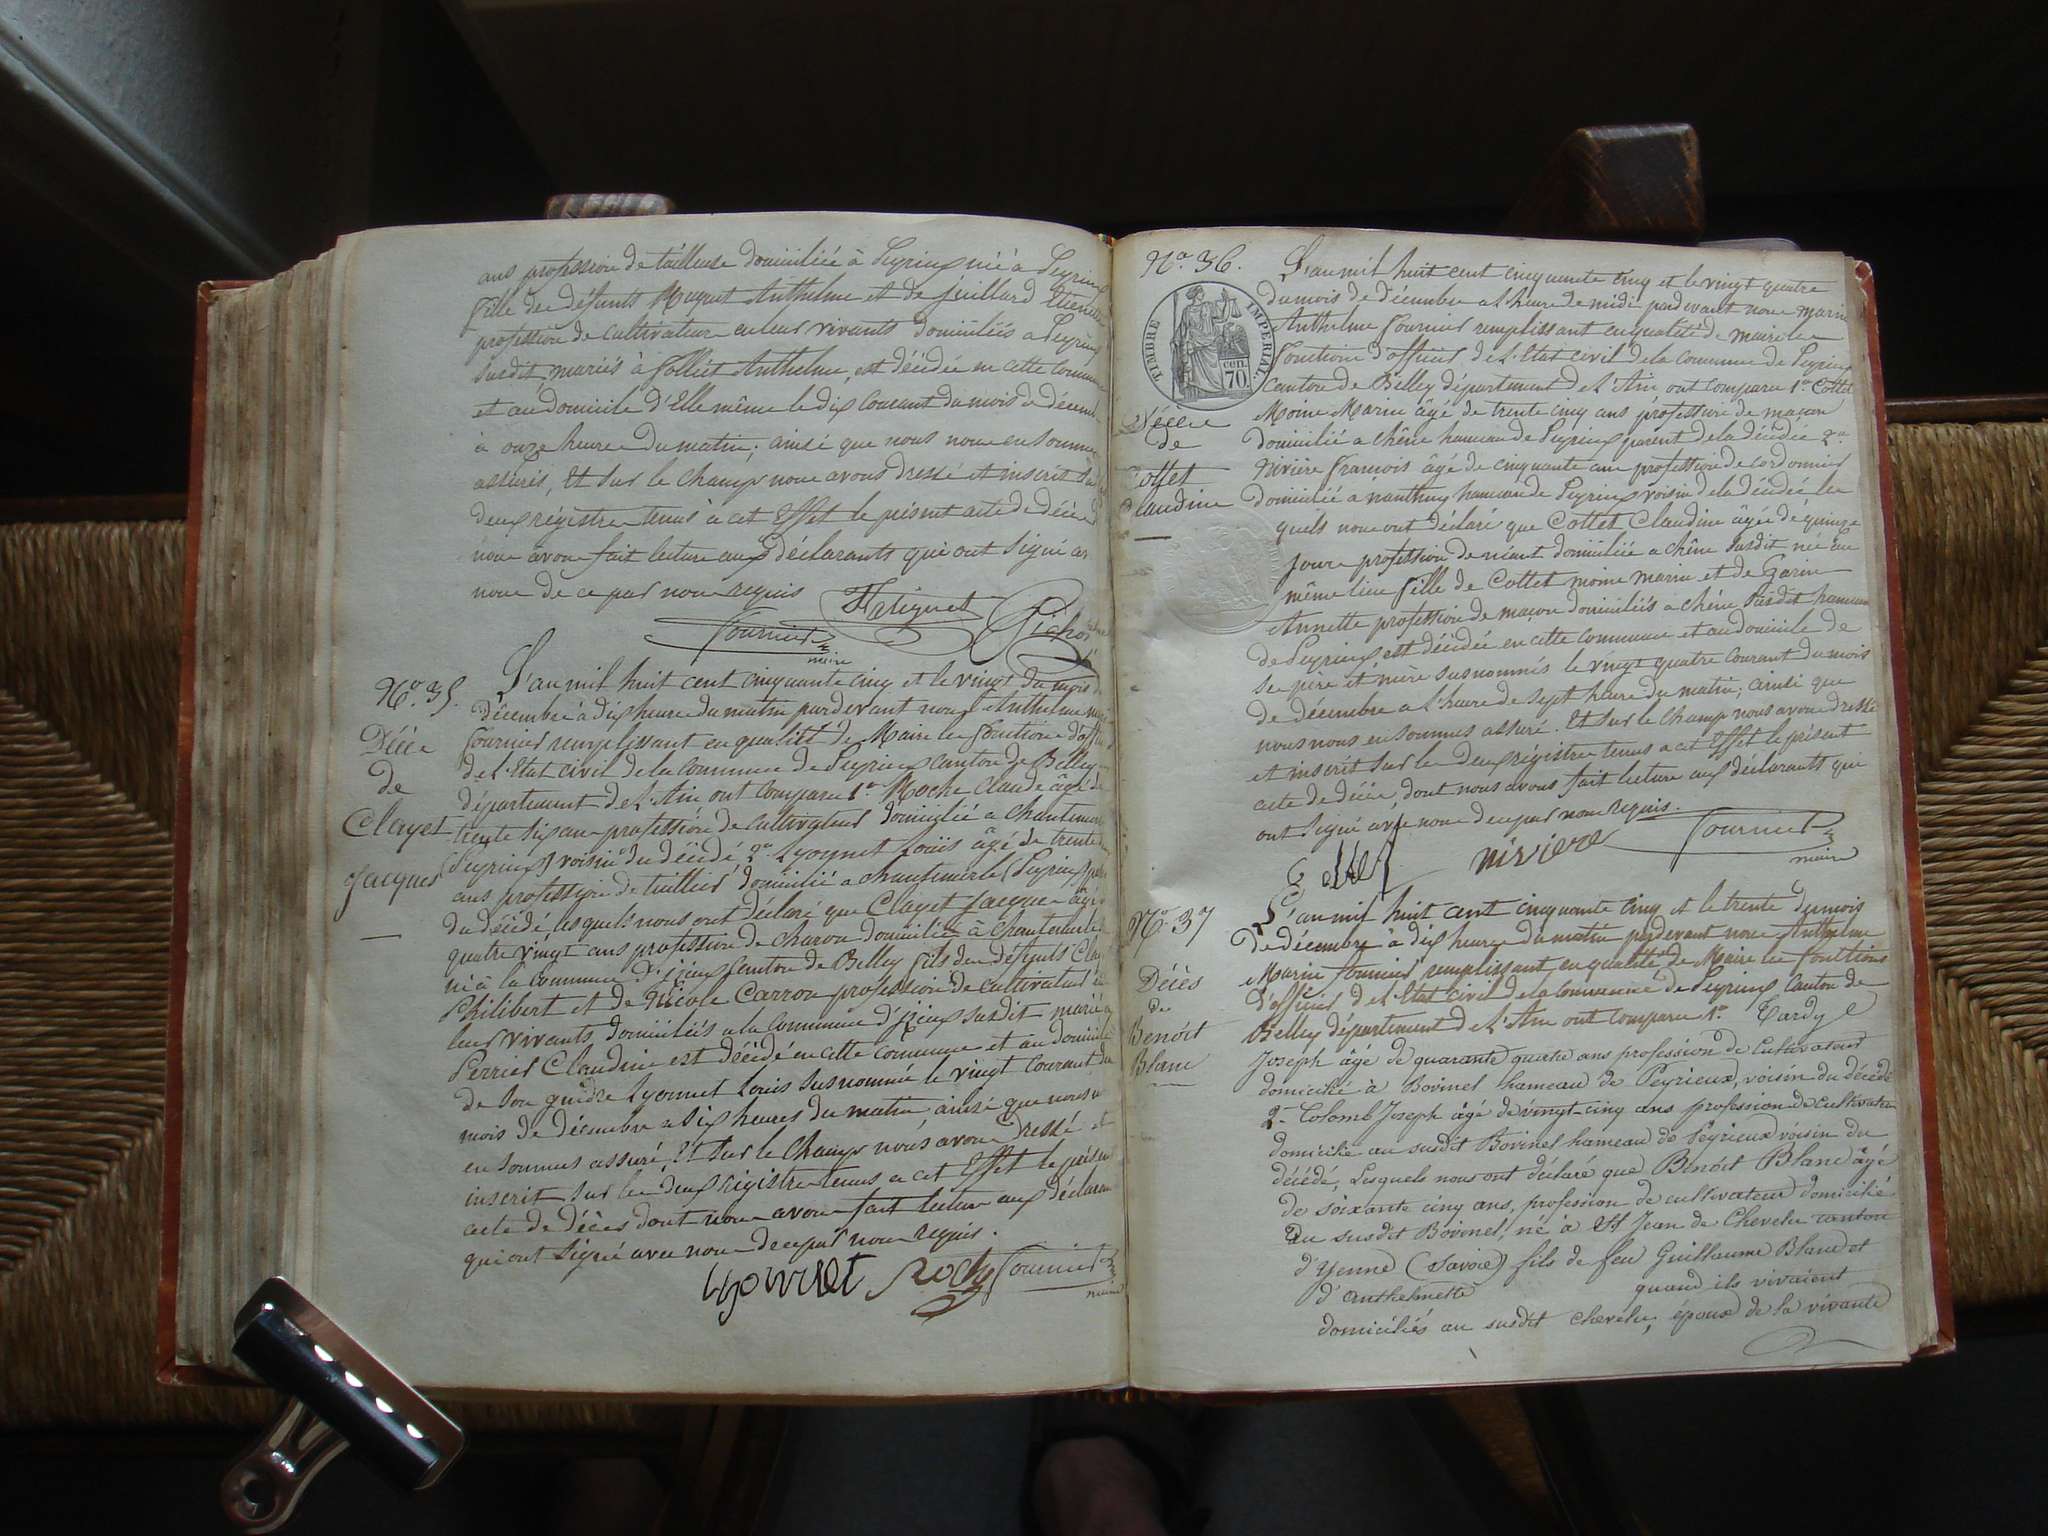 ans profession de tailleuse domiciliée à Peyrieux née à Peyrieux
fille des défunts Moquet Anthelme et de juillard Etiennette
profession de cultivateur en leur vivants domiciliés a Peyrieux
susdit, mariés à folliet Anthelme, est décédée en cette commune
et au domicile d'Elle même le dix courant du mois de décembre
à onze heures du matin; ainsi que nous nous en sommes
assurés, Et sur le champ nous avons dressé et inscrit sur
deux régistres tenus à cet Effet le présent acte de décès
nous avons fait lecture aux déclarants qui ont signé avec
nous de ce par nous requis
Fournier
maire
N.o 35.
Décès
de
Clayet
Jacques
L'an mil huit cent cinquante cinq et le vingt du mois de
décembre à dix heures du matin pardevant nous Anthelme
fournier remplissant en qualité de Maire les fonctions d'off
de l'Etat civil de la commune de Peyrieux canton de Belley
département de l'Ain ont comparu 1.o Roche Claude âgé de
trente six ans profession de cultivateur domicilié a Chantemerle
(Peyrieux) voisin du décédé, 2.o Lyonnet Louis âgé de trente
ans profession de tuillier domicilié a chantemerle (Peyrieux)
du décédé lesquels nous ont déclaré que Clayet Jacques âgé
quatre vingt ans profession de charon domicilié à Chantemerle
né à la commune d'izieux Canton de Belley fils des défunts
Philibert et de Nicole Carron profession de cultivateur
leur vivants domiciliés a la commune d'izieux susdit marié a
Perrier Claudine est décédé en cette commune et au domicile
de son gendre Lyonnet Louis susnommé le vingt courant du
mois de décembre a six heures du matin, ainsi que nous
en sommes assuré, Et sur le champ nous avons dressé et
inscrit sur les deux régistres tenus a cet Effet le présent
acte de Décès dont nous avons fait lecture aux déclarants
qui ont signé avec nous de ce par nous requis.
Lyonnet Roche Fournier
maire
N.o 36.
TIMBRE IMPERIAL
70 cen.
Décès
de
Cottet
Claudine
L'an mil huit cent cinquante cinq et le vingt quatre
du mois de décembre a l'heure de midi pardevant nous marin
Anthelme fournier remplissant en qualité de maire les
fonctions d'officier de l'Etat civil de la commune de Peyrieux
Canton de Belley département de l'Ain ont comparu 1.o Cottet
Moine Marin âgé de trente cinq ans profession de maçon
domicilié a Chêne hameau de Peyrieux parent de la décédée 2.o
Nivière François âgé de cinquante ans profession de cordonnier
domicilié a nanthuy hameau de Peyrieux voisin de la décédée les
quels nous ont déclaré que Cottet Claudine âgée de quinze
jours profession de néant domiciliée a chêne susdit née au
même lieu fille de Cottet moine marin et de Garin
Annette profession de maçon domiciliés a chêne susdit hameau
de Peyrieux est décédée en cette commune et au domicile de
ses père et mère susnommés le vingt quatre courant du mois
de décembre a l'heure de sept heures du matin; ainsi que
nous nous en sommes assuré. Et sur le champ nous avons dressé
et inscrit sur les deux régistres tenus a cet Effet le présent
acte de décès, dont nous avons fait lecture aux déclarants qui
ont signé avec nous de ce par nous requis.
nivière Fournier
maire
N.o 37
Décès
de
Benoit
Blanc
L'an mil huit cent cinquante cinq et le trente du mois
de décembre à dix heures du matin pardevant nous Anthelme
Marin fournier remplissant en qualité de Maire les fonctions
d'officier de l'Etat civil de la commune de Peyrieux Canton de
Belley département de l'Ain ont comparu 1.o Tardy
Joseph âgé de quarante quatre ans profession de Cultivateur
domicilié à Bovinel hameau de Peyrieux, voisin du décédé
2.- Colomb Joseph âgé de vingt-cinq ans profession de cultivateur
domicilié au susdit Bovinel hameau de Peyrieux voisin du
décédé, Lesquels nous ont déclaré que Benoit Blanc âgé
de soixante cinq ans, profession de cultivateur domicilié
au susdit Bovinel, né à St Jean de Chevelu canton
d'Yenne (Savoie) fils de feu Guillaume Blanc et
d'anthelmette quand ils vivaient
domiciliés au susdit Chevelu, époux de la vivante